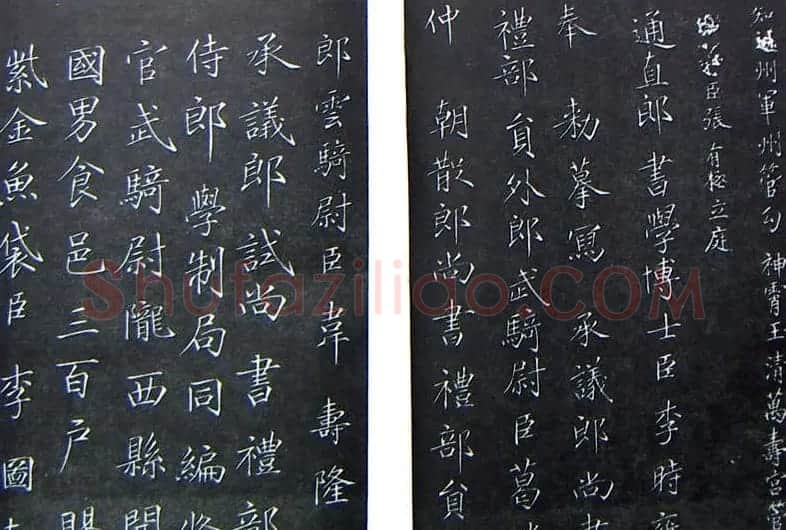 知州軍州管勾神霄玉清萬壽宮管
臣張有極立庭
通直郎書學博士臣李時
奉勅摹寫承議郎尚書
禮部貟外郎武騎尉臣葛
仲朝散郎尚書禮部貟
郎雲騎尉臣韋壽隆
承議郎試尚書禮部
侍郎學制局同編修
官武騎尉隴西縣開
國男食邑三百戶賜
紫金魚袋臣李圖
Shufaziliao.COM